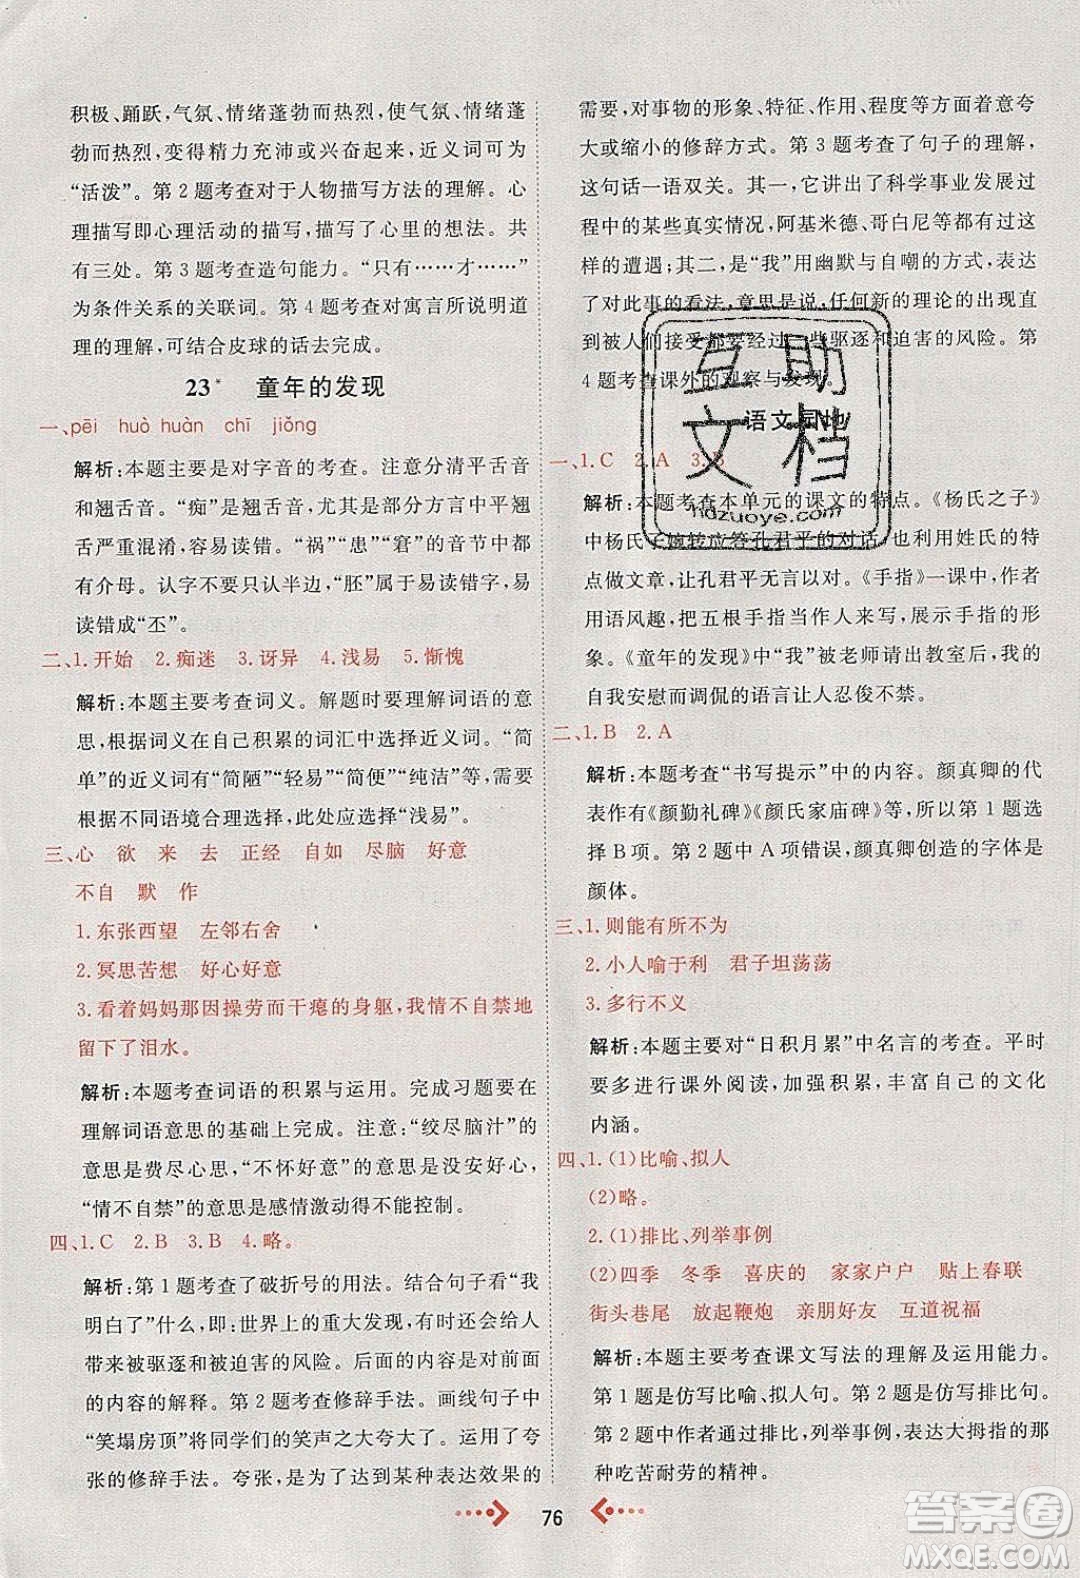 积极、踊跃,气氛、情绪蓬勃而热烈,使气氛、情绪蓬
勃而热烈,变得精力充沛或兴奋起来,近义词可为
“活泼”。第2题考查对于人物描写方法的理解。心
理描写即心理活动的描写,描写了心里的想法。共
有三处。第3题考查造句能力。“只有……才……”
为条件关系的关联词。第4题考查对寓言所说明道
理的理解,可结合皮球的话去完成。
23* 童年的发现
一、pēi huò huàn chī jiǒng
解析:本题主要是对字音的考查。注意分清平舌音
和翘舌音。“痴”是翘舌音,尤其是部分方言中平翘
舌严重混淆,容易读错。“祸”“患”“窘”的音节中都
有介母。认字不可只认半边,“胚”属于易读错字,易
读错成“丕”。
二、1.开始 2.痴迷 3.讶异 4.浅易 5.惭愧
解析:本题主要考查词义。解题时要理解词语的意
思,根据词义在自己积累的词汇中选择近义词。“简
单”的近义词有“简陋”“轻易”“简便”“纯洁”等,需
根据不同语境合理选择,此处应选择“浅易”。
三、心 欲 来 去 正经 自如 尽脑 好意
不自 默 作
1.东张西望 左邻右舍
2.冥思苦想 好心好意
3.看着妈妈那因操劳而干瘪的身躯,我情不自禁地
留下了泪水。
解析:本题考查词语的积累与运用。完成习题要在
理解词语意思的基础上完成。注意:“绞尽脑汁”的
意思是费尽心思,“不怀好意”的意思是没安好心,
“情不自禁”的意思是感情激动得不能控制。
四、1.C 2.B 3.B 4.略。
解析:第1题考查了破折号的用法。结合句子看“我
明白了”什么,即:世界上的重大发现,有时还会给人
带来被驱逐和被迫害的风险。后面的内容是对前面
内容的解释说明。第2题考查修辞手法。画线句子中
“笑塌房顶”将同学们的笑声之大夸大了。运用了夸
张的修辞手法。夸张,是指为了达到某种表达效果的
需要,对事物的形象、特征、作用、程度等方面着意夸
大或缩小的修辞方式。第3题考查了句子的理解,
这句话一语双关。其一,它讲出了科学事业发展过
程中的某些真实情况,阿基米德、哥白尼等就有过这
样的遭遇;其二,是“我”用幽默与自嘲的语言,表达
了对此事的看法,意思是说,任何新的理论的出现直
到被人接受都要经过一些驱逐和迫害的风险。第
4题考查课外的观察与发现。
语文园地
一、1.C 2.A 3.B
解析:本题考查本单元的课文的特点。《杨氏之子》
中杨氏子婉转应答孔君平的对话,也利用姓氏的特
点做文章,让孔君平无言以对。《手指》一课中,作者
用语风趣,把五根手指当作人来写,展示手指的形
象。《童年的发现》中“我”被老师请出教室后,“我”的
自我安慰而调侃的语言让人忍俊不禁。
二、1.B 2.A
解析:本题考查“书写提示”中的内容。颜真卿的代
表作有《颜勤礼碑》《颜氏家庙碑》等,所以第1题选
择B项。第2题中A项错误,颜真卿创造的字体是
颜体。
三、1.则能有所不为
2.小人喻于利 君子坦荡荡
3.多行不义
解析:本题主要对“日积月累”中名言的考查。平时
要多进行课外阅读,加强积累,丰富自己的文化
内涵。
四、1.(1)比喻、拟人
(2)略。
2.(1)排比、列举事例
(2)四季 冬季 喜庆的 家家户户 贴上春联
街头巷尾 放起鞭炮 亲朋好友 互道祝福
解析:本题主要考查课文写法的理解及运用能力。
第1题是仿写比喻、拟人句。第2题是仿写排比句。
第2题中作者通过排比,列举事例,表达大拇指的那
种吃苦耐劳的精神。
76
互助
文档
hdzuoye.com
答案圈
MXQE.COM